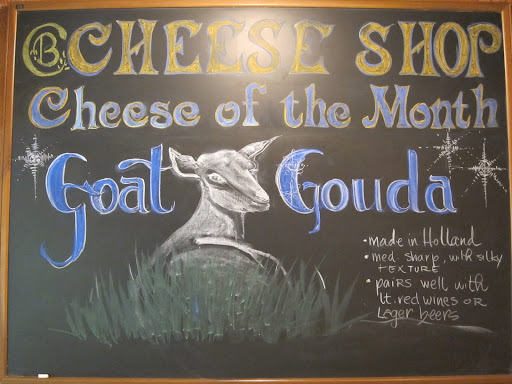 B CHEESE SHOP
Cheese of the Month
Goat Gouda
• made in Holland
• med sharp, with silky
TEXTURE
• pairs well with
Lt. red wines OR
Lager beers